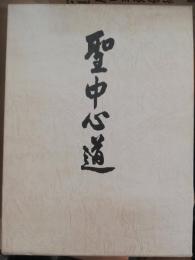 聖中心道